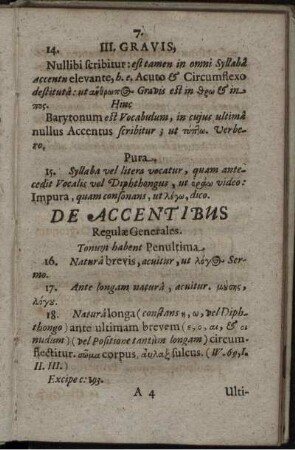 7.
14. III. GRAVIS,
Nullibi scribitur: est tamen in omni Syllabâ
accentu elevante, h. e, Acuto & Circumflexo
destitutâ: ut Gravis est in & in
Hinc
Barytonum est Vocabulum, in cujus ultimâ
nullus Accentus scribitur; ut τυπτω. Verbe-
ro,
Pura
15. Syllaba vel litera vocatur, quam ante-
cedit Vocalis vel Diphthongus, ut ὁράω video:
Impura, quam consonans, ut λέγω, dico.
DE ACCENTIBUS
Regulæ Generales.
Tonum habent Penultima
16. Naturâ brevis, acuitur, ut λόγος. Ser-
mo.
17. Ante longam naturâ, acuitur. μούσης,
λόγου.
18. Naturâ longa (constans η, ω, vel Diph-
thongo) ante ultimam brevem (ε, ο, αι, & οι
nudum) (vel Positione tantùm longam) circum-
flectitur. σῶμα corpus, αὖλαξ sulcus. (W. 69, l.
II. III.)
Excipe c: 193.
A 4 Ulti-